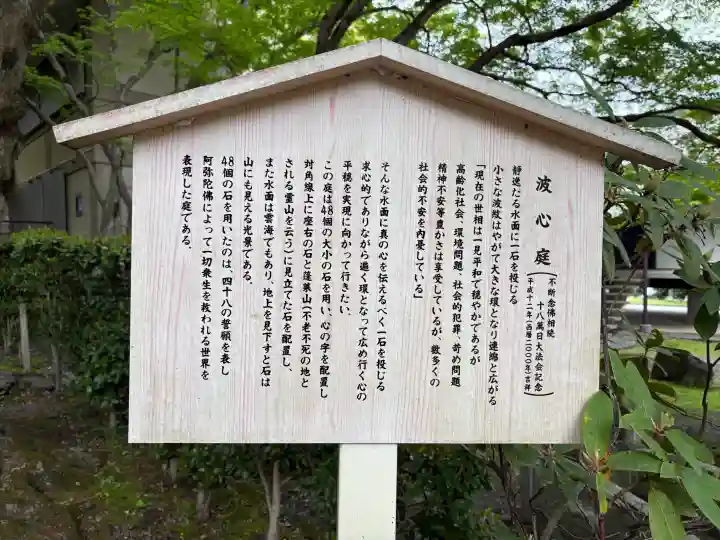 波心庭
不断念佛相続
十八萬日大法会記念
平成十二年(西暦二〇〇〇年)吉祥
静逸たる水面に一石を投じる
小さな波紋はやがて大きな環となり連綿と広がる
「現在の世相は一見平和で穏やかであるが
高齢化社会、環境問題、社会的犯罪、苛め問題
精神不安等豊かさは享受しているが、数多くの
社会的不安を内憂している」
そんな水面に真の心を伝えるべく一石を投じる
求心的でありながら遍く環となって広め行く心の
平穏を実現に向かって行きたい、
この庭は48個の大小の石を用い、心の字を配置し
対角線上に座右の石と蓬莱山(不老不死の地と
される霊山を云う)に見立てた石を配置し、
また水面は雲海でもあり、地上を見下すと石は
山にも見える光景である、
48個の石を用いたのは、四十八の誓願を表し
阿弥陀佛によって一切衆生を救われる世界を
表現した庭である。